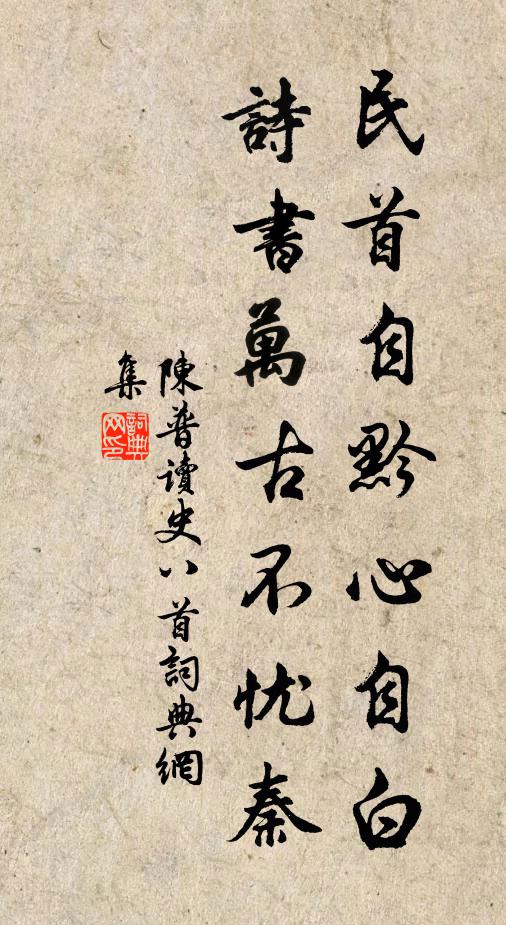 民首自黔心自白
詩書萬古不忧秦
陳普讀史八首詞典網
集
詞典网印